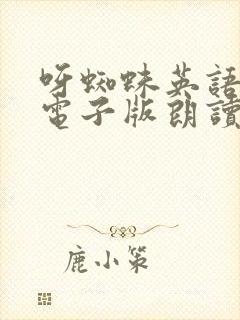 呀蜘蛛英語
電子版朗讀
鹿小策